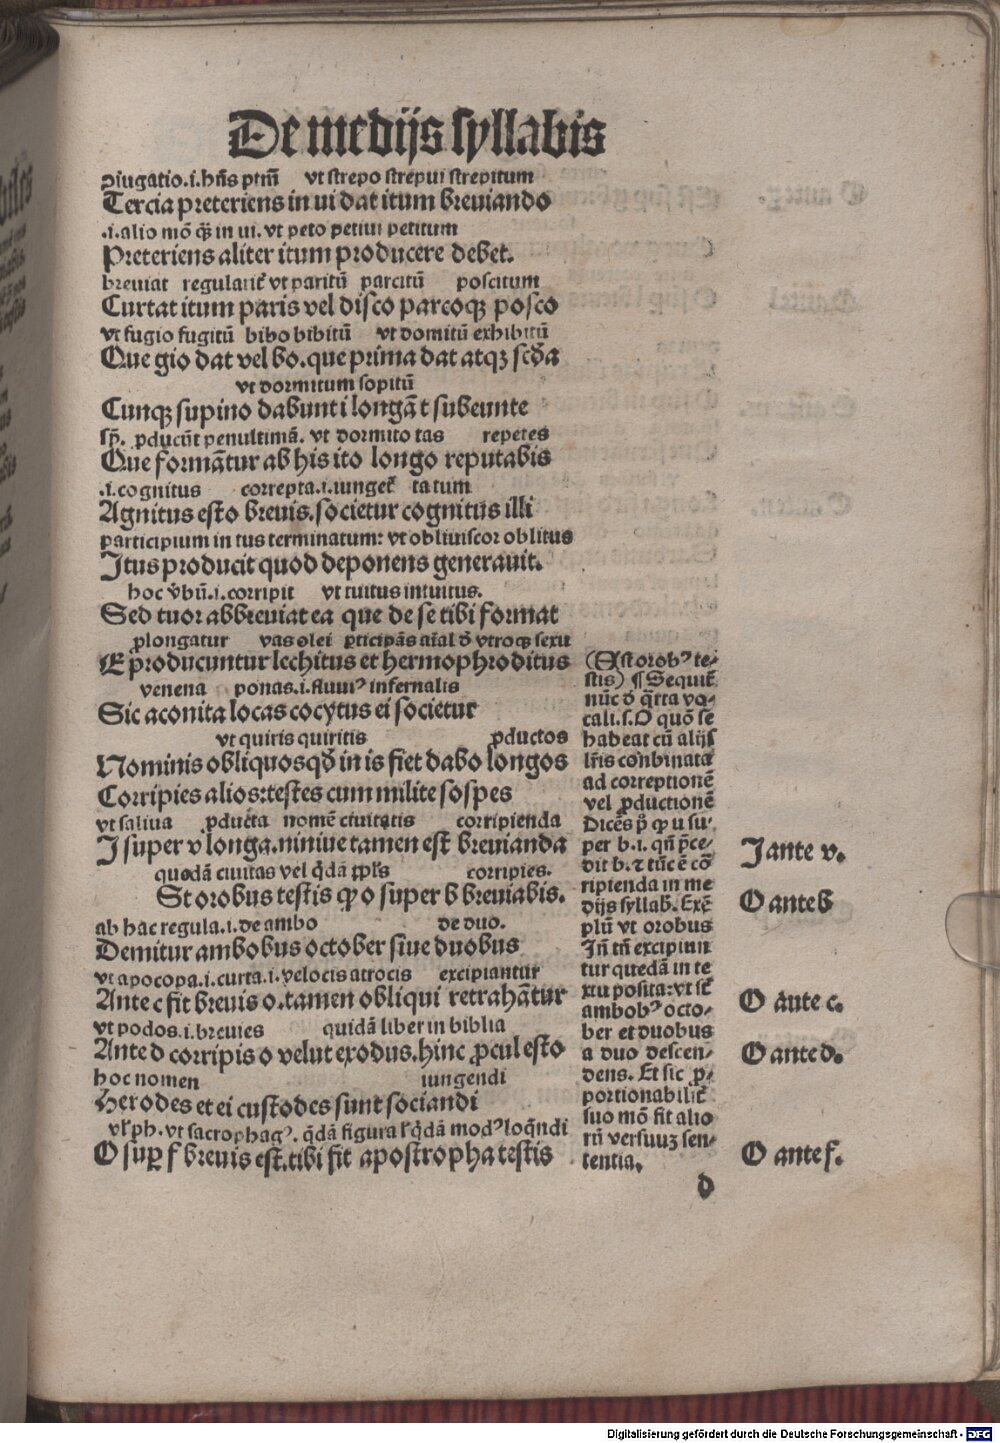 De medijs syllabis
Diugatio.i.hñs ptm̃ vt strepo strepui strepitum
Tercia preteriens in ui dat itum breuiando
.i.alio mõ q̃ȝ in ui. vt peto petiui petitum
Preteriens aliter itum producere debet.
breuiat regularit᷑ vt paritũ parcitũ poscitum
Curtat itum paris vel disco parcoqȝ posco
vt fugio fugitũ bibo bibitũ vt domitũ exhibitũ
Que gio dat vel bo.que prima dat atqȝ scd̃a
vt dormitum sopitũ
Cunqȝ supino dabunt i longã t subeunte
sp̃. ꝓducũt penultimã. vt dormito tas repetes
Que formãtur ab his ito longo reputabis
.i.cognitus correpta.i.iunget᷑ ta tum
Agnitus esto breuis.societur cognitus illi
participium in tus terminatum: vt obliuiscor oblitus
Itus producit quod deponens generauit.
hoc v̓bũ.i.corripit vt tuitus intuitus.
Sed tuor abbreuiat ea que de se tibi format
ꝓlongatur vas olei ꝑticipãs aĩal d̓ vtroqȝ sexu
E producuntur lechitus et hermophroditus
venena ponas.i.fluuiꝰ infernalis
Sic aconita locas cocytus ei societur
vt quiris quiritis ꝓductos
Nominis obliquos qđ in is fiet dabo longos
Corripies alios:testes cum milite sospes
vt saliua ꝓducta nomẽ ciuitatis corripienda
I super v longa.niniue tamen est breuianda
quedã ciuitas vel q̃dã ꝓp̃ls corripies.
St orobus testis ꝙ o super b breuiabis.
ab hac regula.i.de ambo de duo.
Demitur ambobus october siue duobus
vt apocopa.i.curta.i.velocis atrocis excipiantur
Ante c fit breuis o.tamen obliqui retrahãtur
vt podos.i.breuies quidã liber in biblia
Ante d corripis o velut exodus.hinc ꝓcul esto
hoc nomen iungendi
Herodes et ei custodes sunt sociandi
vl̓ ph. vt sacrophagꝰ. q̃dã figura l̓ q̃dã modꝰ loq̃ndi
O suꝑ f breuis est.tibi fit apostropha testis
(Ast orobꝰ te⸗
stis) ¶ Sequit᷑
nũc d̓ q̃rta vo⸗
cali.s.O quõ se
habeat cũ alijs
lr̃is conbinata
ad correptionẽ
vel ꝓductionẽ
Dicẽs p̃ ꝙ u su⸗
per b.i. qñ p̃ce⸗
dit b. ⁊ tũc ẽ cõ
ripienda in me
dijs syllab. Exẽ
plũ vt orobus
Iñ tñ excipiun
tur quedã in te
xtu posita:vt st̃
ambobꝰ octo⸗
ber et duobus
a duo descen⸗
dens. Et sic ꝓ⸗
portionabilit᷑
suo mõ fit alio
rũ versuuȝ sen⸗
tentia.
I ante v.
O ante b
O ante c.
O ante d.
O ante f.
d
Digitalisierung gefördert durch die Deutsche Forschungsgemeinschaft - DFG